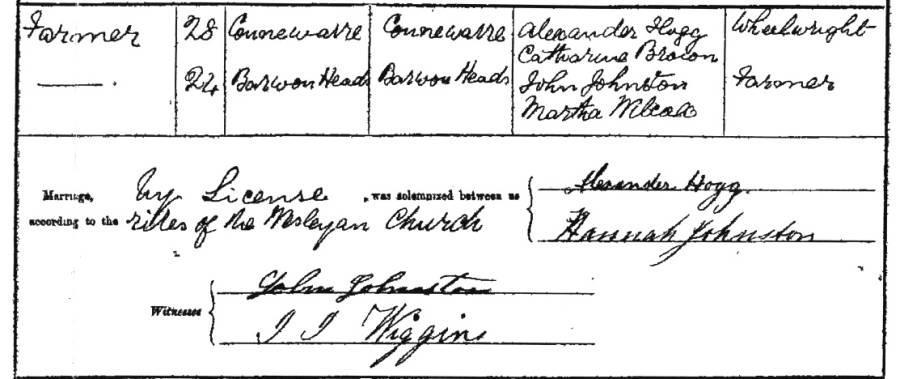 Farmer 28 Connewarre Connewarre Alexander Hogg Wheelwright
Catharine Brown
——. 24 Barwon Heads Barwon Heads John Johnston Farmer
Martha
Marriage, by License, was solemnized between us Alexander Hogg.
according to the rites of the Wesleyan Church Hannah Johnston
Witnesses John Johnston
J J Wiggins